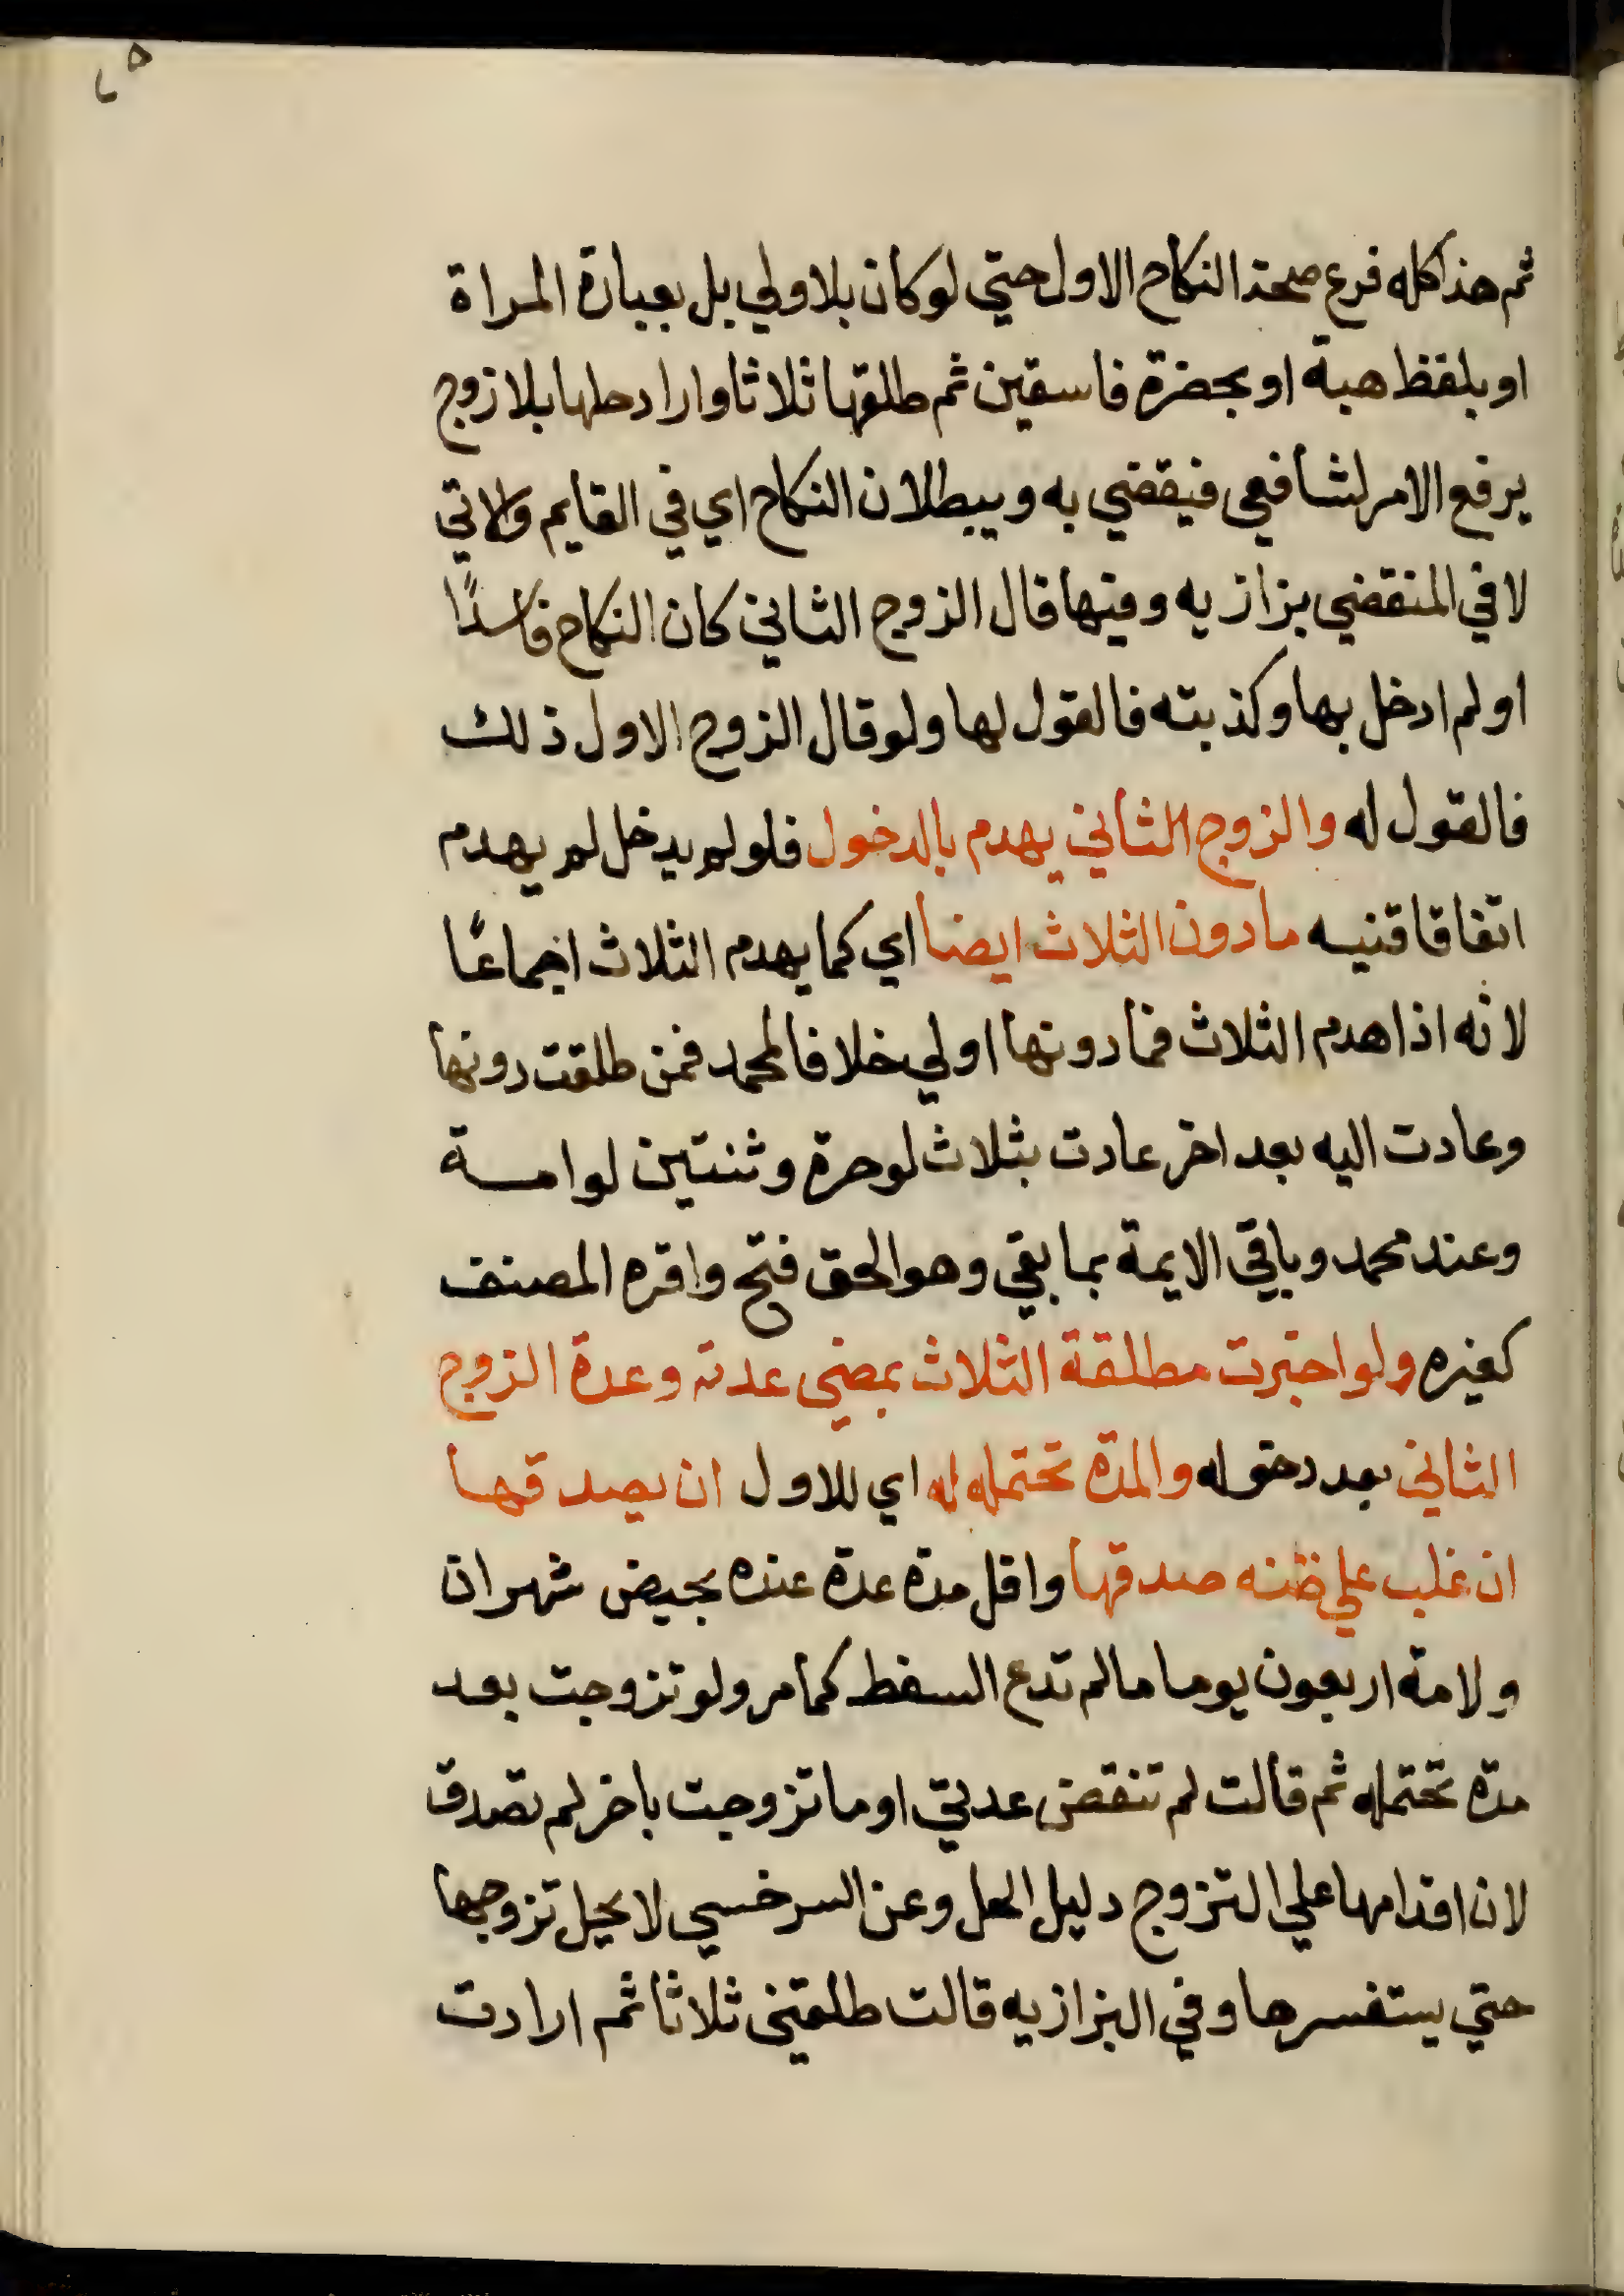 ٢٥
ثم هذا كله فرع صحة النكاح الاول حتي لو كان بلا ولي بل بعبارة المراة
او بلفظ هبة او بحضرة فاسقين ثم طلقها ثلاثا واراد حلها بلا زوج
يرفع الامر لشافعي فيقضي به وببطلان النكاح اي في القايم والاتي
لا في المنقضي بزازيه وفيها قال الزوج الثاني كان النكاح فاسدًا
او لم ادخل بها وكذبته فالقول لها ولو قال الزوج الاول ذلك
فالقول له والزوج الثاني يهدم بالدخول فلو لم يدخل لم يهدم
اتفاقا قنيه ما دون الثلاث ايضا اي كما يهدم الثلاث اجماعًا
لانه اذا هدم الثلاث فما دونها اولي خلافا لمحمد فمن طلقت دونها
وعادت اليه بعد اخر عادت بثلاث لو حرة وثنتين لو امة
وعند محمد وباقي الايمة بما بقي وهو الحق فتح واقره المصنف
كغيره ولو اخبرت مطلقة الثلاث بمضي عدته وعدة الزوج
الثاني بعد دخوله والمدة تحتمله له اي للاول ان يصدقها
ان غلب علي ظنه صدقها واقل مدة عدة عنده بحيض شهران
ولامة اربعون يوما ما لم تدع السقط كما مر ولو تزوجت بعد
مدة تحتمله ثم قالت لم تنقض عدتي او ما تزوجت باخر لم تصدق
لان اقدامها علي التزوج دليل الحل وعن السرخسي لا يحل تزوجها
حتي يستفسرها وفي البزازيه قالت طلقني ثلاثا ثم ارادت